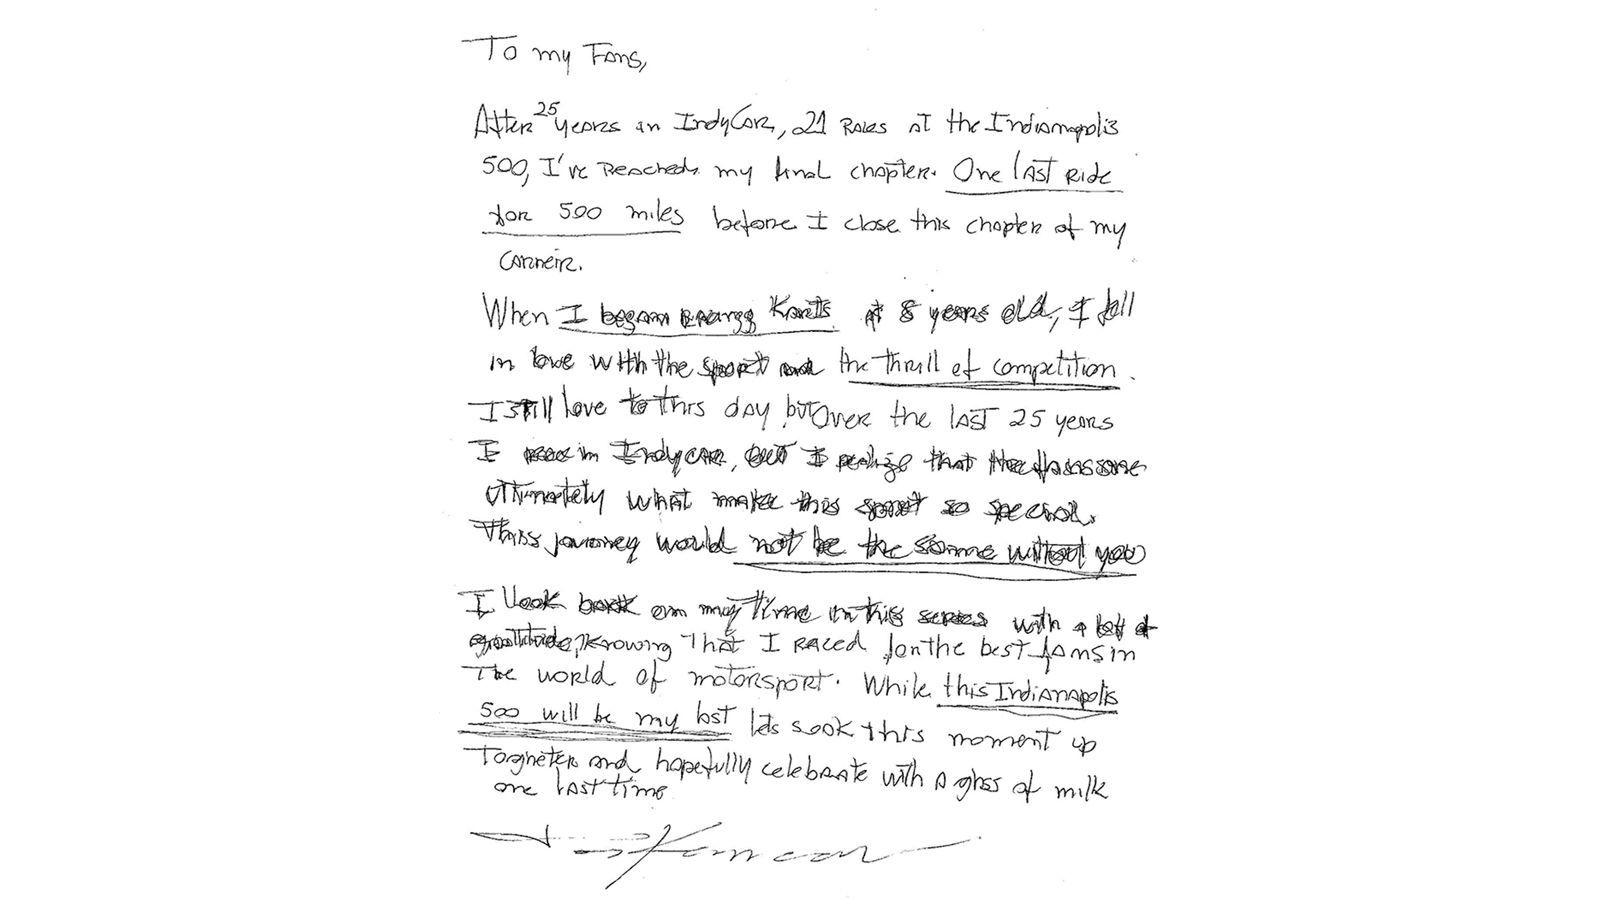 To my Fans,
After 25 years in IndyCar, 21 Races at the Indianapolis
500, I've Reached my final chapter. One last Ride
for 500 miles before I close this chapter of my
Carreir.
When I began racing Karts at 8 years old, I fell
in love with the sport and the thrill of competition.
I still love to this day, but over the last 25 years
I race in Indycar, but I realize that the fans are
ultimately what make this sport so special.
This journey would not be the same without you
I look back on my time in this series with a lot of
gratitude, knowing That I raced for the best fans in
The world of motorsport. While this Indianapolis
500 will be my last lets soak this moment up
Togheter and hopefully celebrate with a glass of milk
one last time
Kanaan